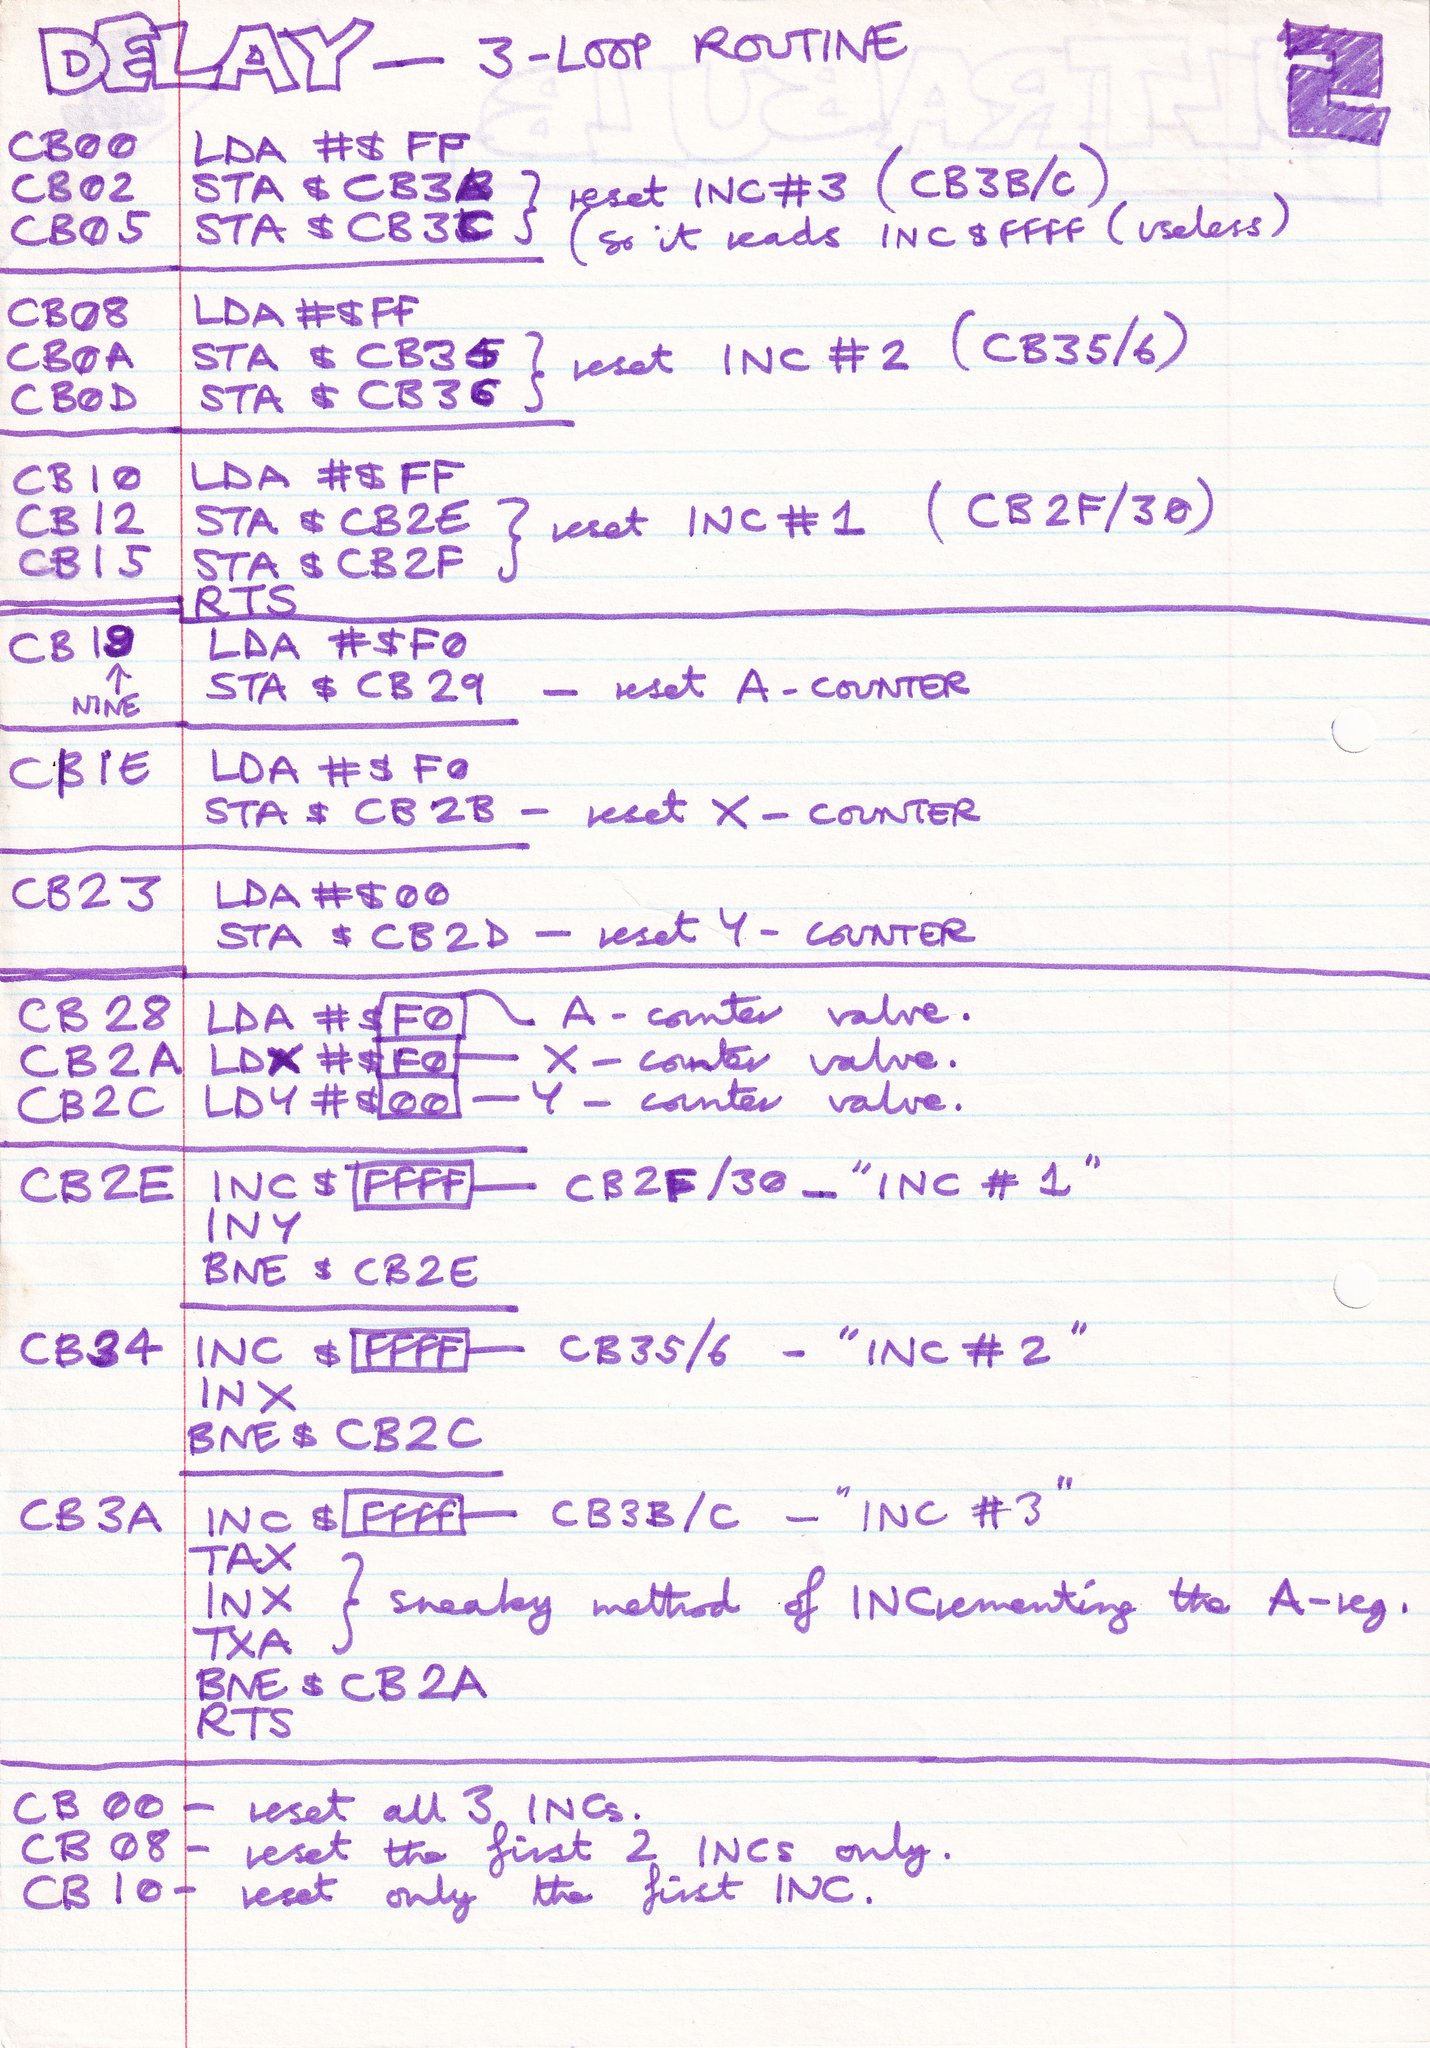 DELAY — 3-LOOP ROUTINE 2
CB00 LDA #$ FF
CB02 STA $ CB3B } reset INC #3 (CB3B/C)
CB05 STA $ CB3C } (so it reads INC $FFFF (useless)
CB08 LDA #$FF
CB0A STA $ CB35 } reset INC #2 (CB35/6)
CB0D STA $ CB36 }
CB10 LDA #$FF
CB12 STA $ CB2E } reset INC #1 (CB2F/30)
CB15 STA $ CB2F }
RTS
CB19 LDA #$F0
↑ NINE STA $ CB29 — reset A-COUNTER
CB1E LDA #$ F0
STA $ CB2B — reset X-COUNTER
CB23 LDA #$00
STA $ CB2D — reset Y-COUNTER
CB28 LDA #$F0 — A-counter valve.
CB2A LDX #$F0 — X-counter valve.
CB2C LDY #$00 — Y-counter valve.
CB2E INC $ FFFF — CB2F/30 — "INC #1"
INY
BNE $ CB2E
CB34 INC $ FFFF — CB35/6 - "INC #2"
INX
BNE $ CB2C
CB3A INC $ FFFF — CB3B/C - "INC #3"
TAX
INX } sneaky method of INCrementing the A-reg.
TXA
BNE $ CB2A
RTS
CB00 - reset all 3 INCs.
CB08 - reset the first 2 INCs only.
CB10 - reset only the first INC.